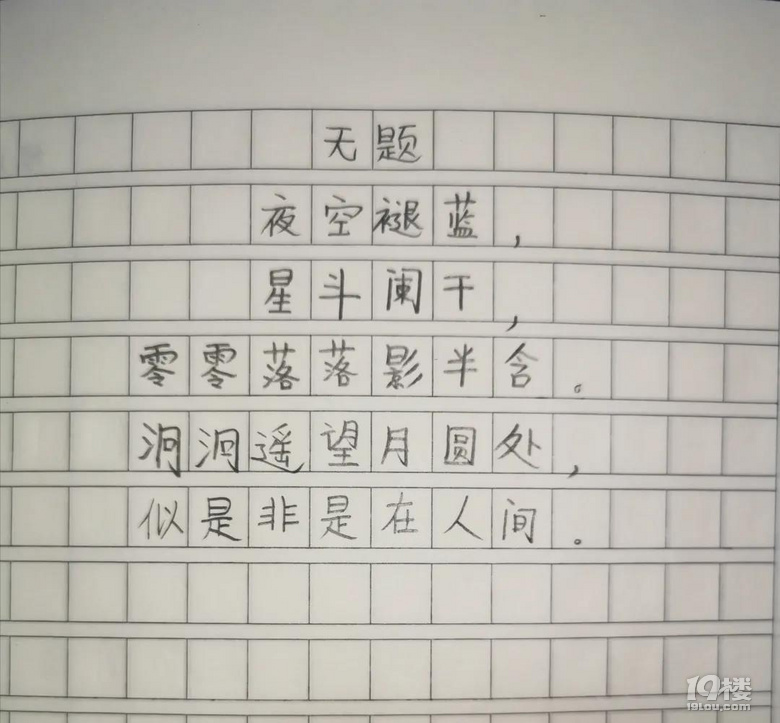 无题
夜空褪蓝，
星斗阑干，
零零落落影半含。
泂泂遥望月圆处，
似是非是在人间。
19楼
19lou.com